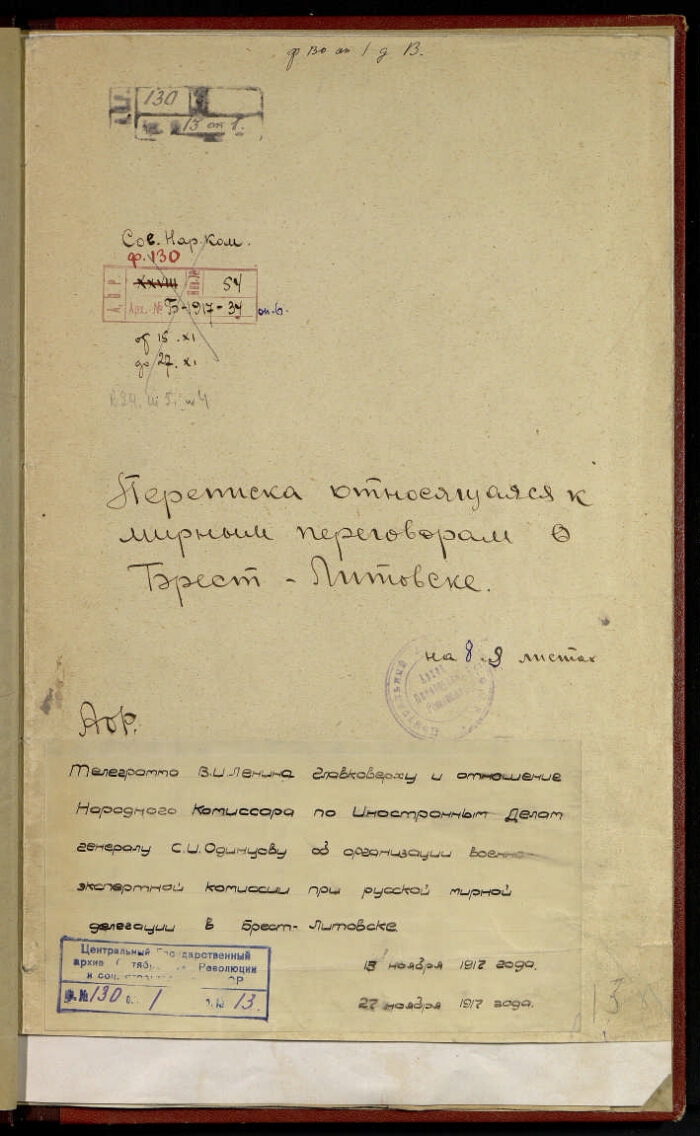 ф 130 оп 1 д 13.
130
13 оп 1.
Сов. Нар. Ком.
ф. 130
А.О.Р. XXVIII 54
Арх. № Б-1917-34 оп. 6.
от 15. XI
до 27. XI
Переписка относящуаяся к
мирным переговорам в
Брест-Литовске.
на 8 9 листах
Центральный
Архив
Аор.
Телеграмма В.И. Ленина Главковерху и отношение
Народного Комиссара по Иностранным Делам
генералу С.И. Одинцову об организации военно-
экспертной комиссии при русской мирной
делегации в Брест-Литовске.
15 ноября 1917 года.
27 ноября 1917 года.
Центральный Государственный
архив Октябр Революции
и соц. Р
ф. № 130 о. 1 д. № 13.
13